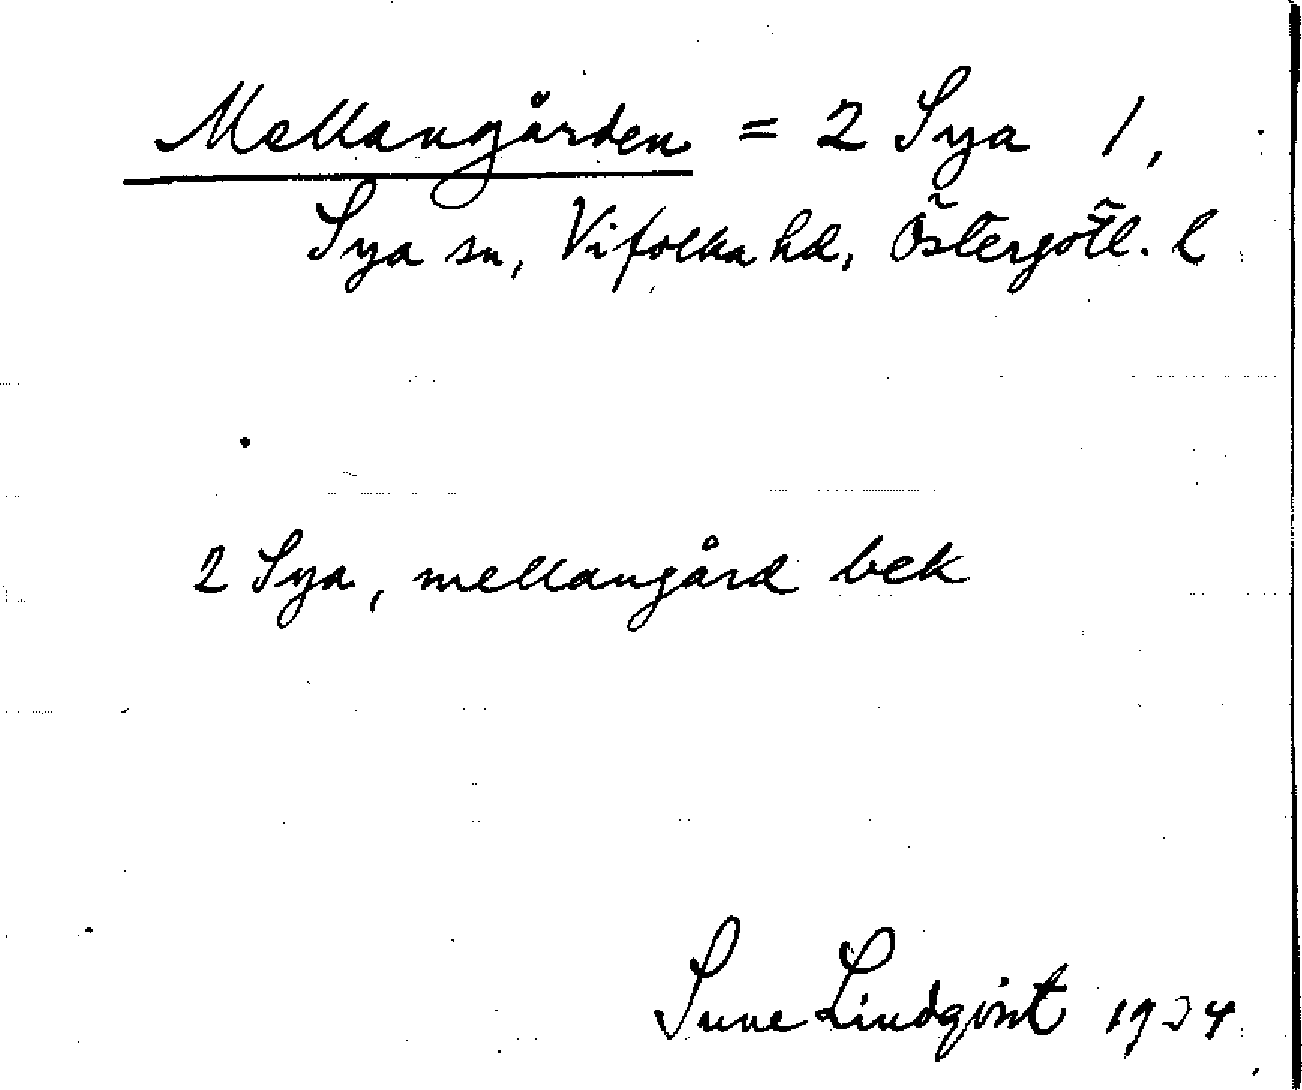 Mellangården = 2 Sya 1,
Sya sn, Vifolka hd, Östergötl. l
2 Sya, mellangård bek
Sune Lindqvist 1924